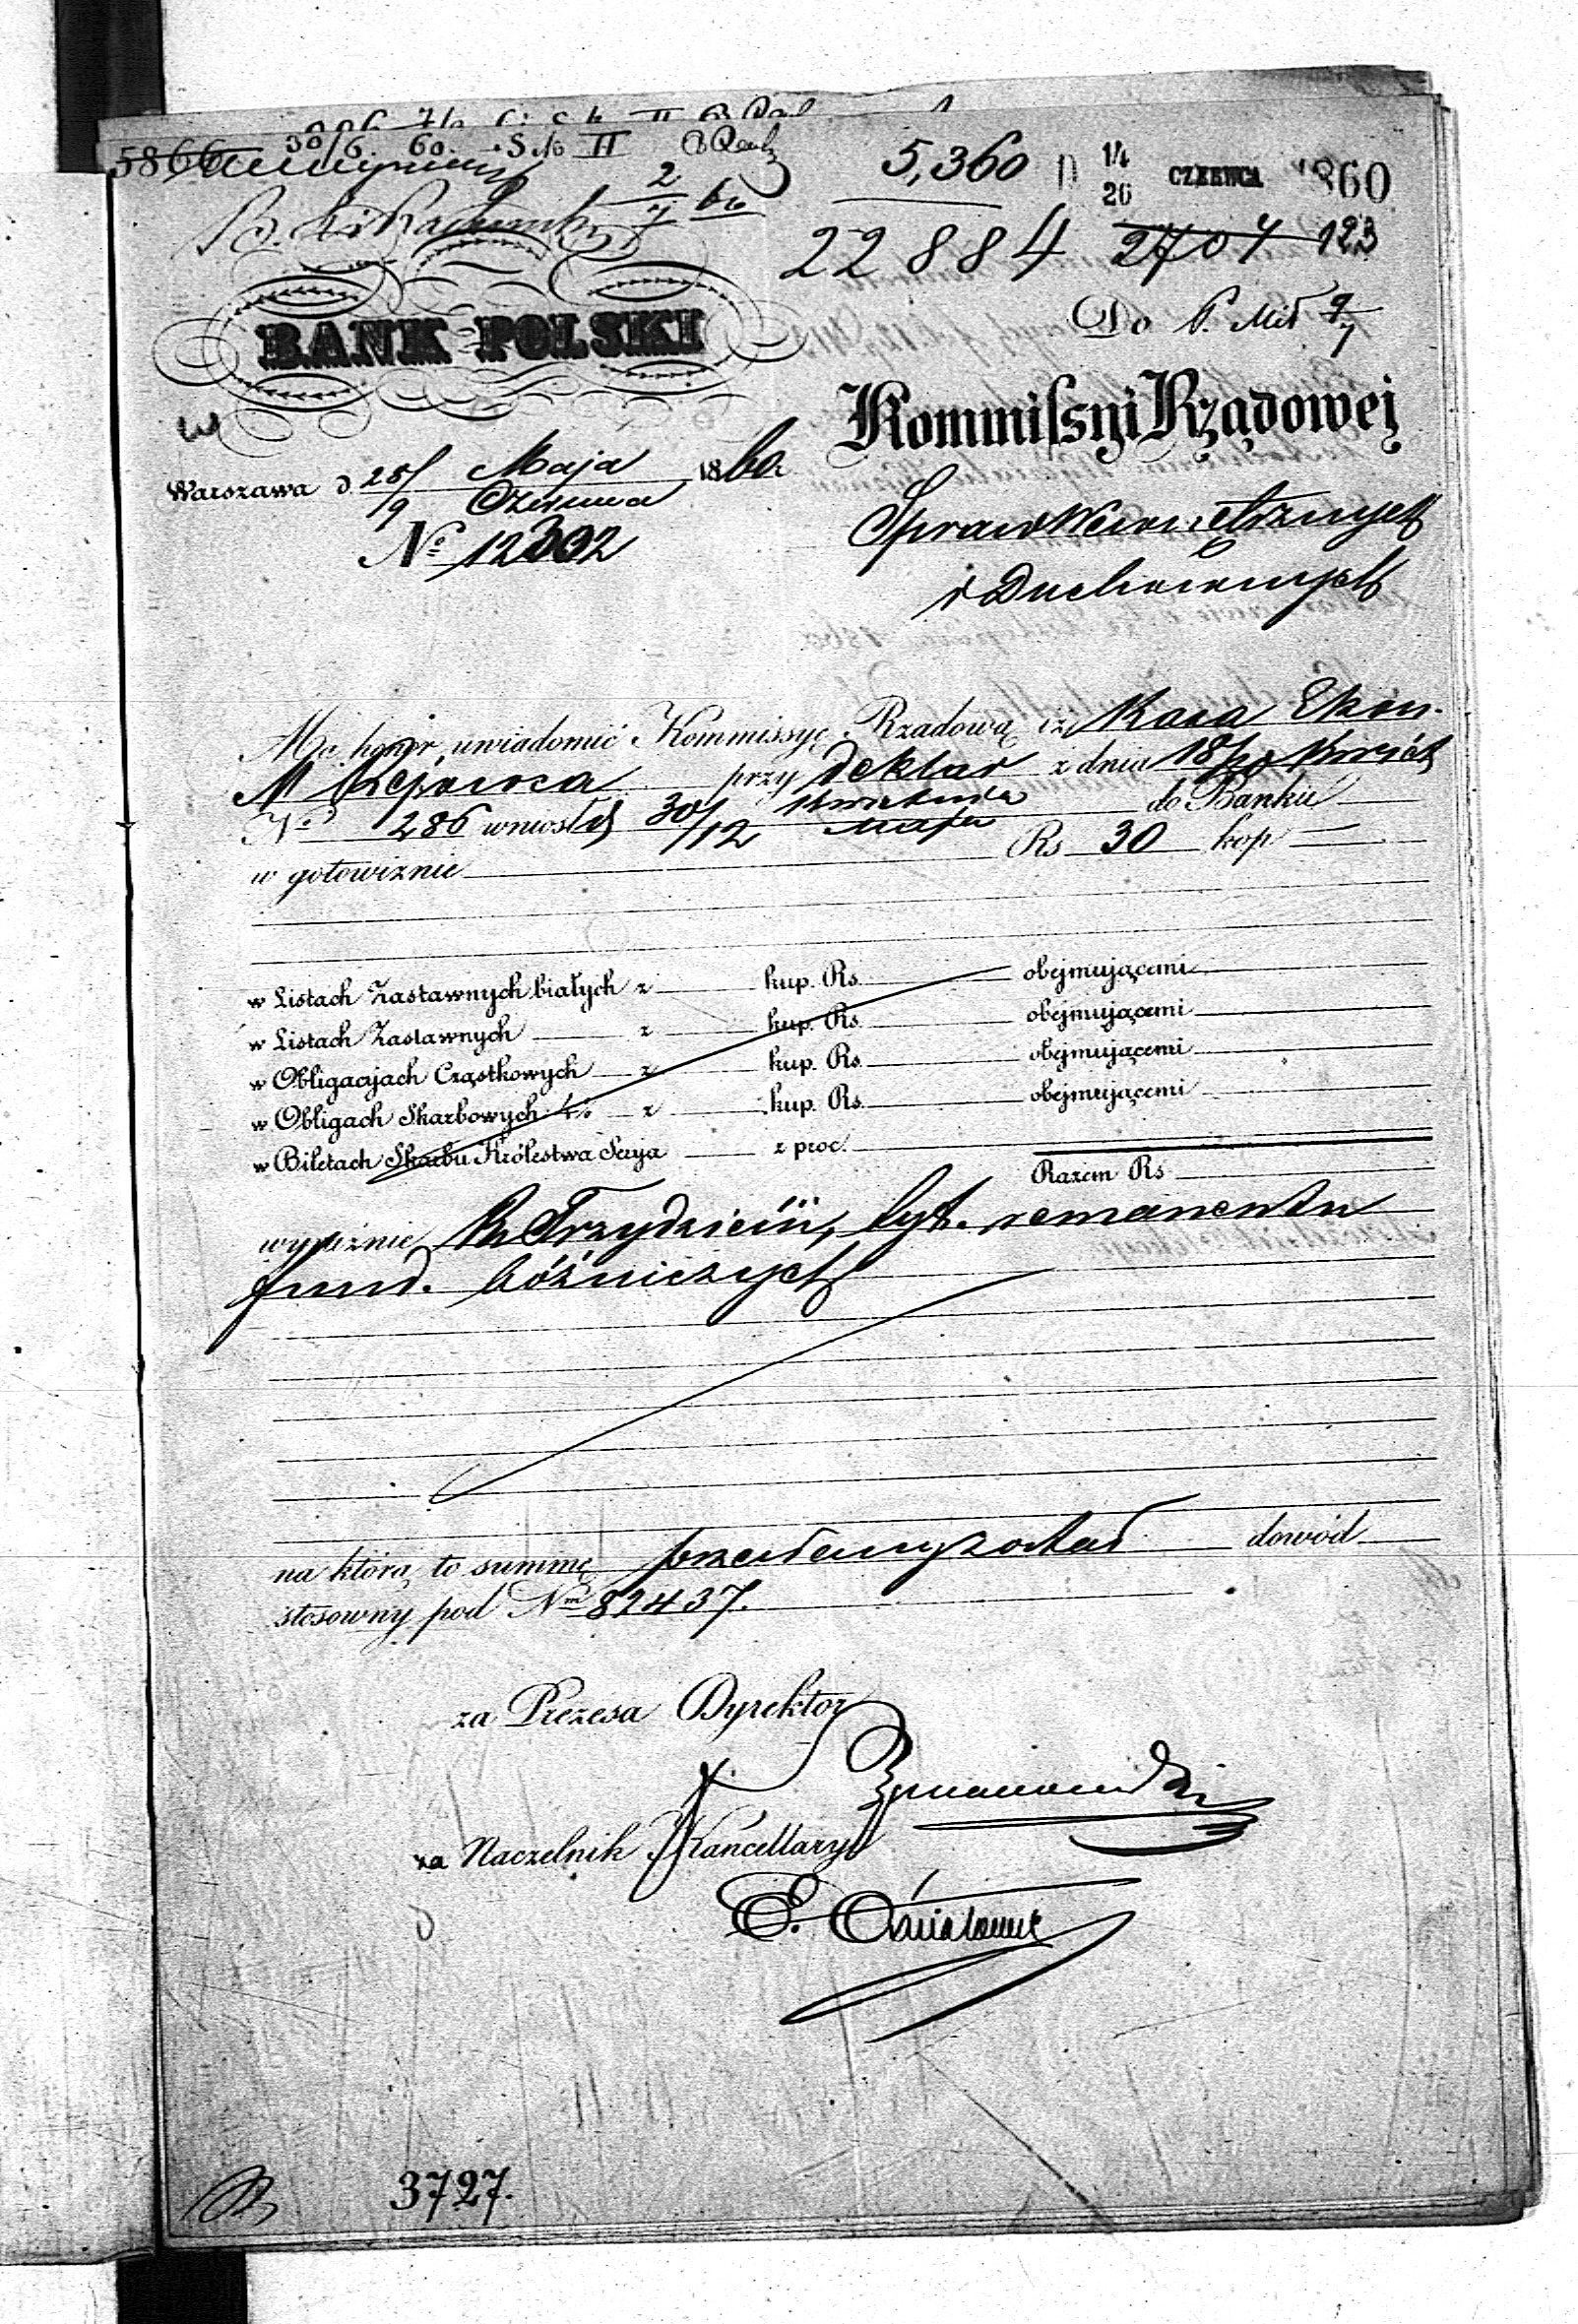 5866 30/6. 60. S. K. II
5,360 D 14/26 CZERWCA 1860
2/7 60
22884 2704 123
BANK POLSKI
Do P. Mił 9/7
Kommissyi Rządowej
Warszawa d. 28/9 Maja Czerwca 1860.
Spraw Wewnętrznych
No. 12302
i Duchownych
Ma honor uwiadomić Kommissyę Rządową iż Kasa Ekon.
M. Rejowca przy deklar z dnia 18/30 Kwiet
No. 286 wniosła d 30/12 Kwietnia Maja do Banku
w gotowiznie Rs 30 kop
w Listach Zastawnych białych z kup. Rs. obejmującemi
w Listach Zastawnych z kup. Rs. obejmującemi
w Obligacyjach Cząstkowych z kup. Rs. obejmującemi
w Obligach Skarbowych 4% z kup. Rs. obejmującemi
w Biletach Skarbu Królestwa Serya z proc.
Razem Rs
wyraźnie Rs Trzydzieści, tyt. remanentu
fund. bóżniczych
na którą to summę przesłany został dowód
stosowny pod Nm 82437.
za Prezesa Dyrektor
za Naczelnik Kancellaryi
E.
3727.